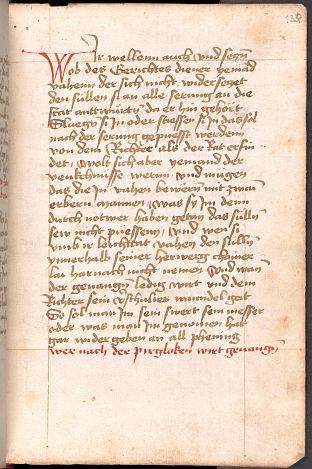 Wir wellenn auch und segn
Wob des Gerichtes diener yemād
vahenn der sich nicht widersetzet
den süllen si an alle serung an die
stat anttwurtn da er hin gehört
Sluego si In oder stiessen si In das sol
nach der serung gepuesst werdenn
von dem Richter als der Rat erfin
det, wolt sich aber yemand der
venkchnusse wernn, und mügen
das die In vahen bewërnn mit zwain
erbern mannen, was sy Im denn
durch notwer haben getan das sülln
sew nicht püessenn, und wen si
umb ir leichttat vahen den sulln
Innerhalb seiner herwerg chainer
lai har nach nicht nemen Und wan
der gevangn ledig wirt und dem
Richter sein wandel geit
So sol man Im sein swert sein messer
oder was man Im genomen hat
gar wider geben an all phening
wer nach der piergloken wirt gevangn